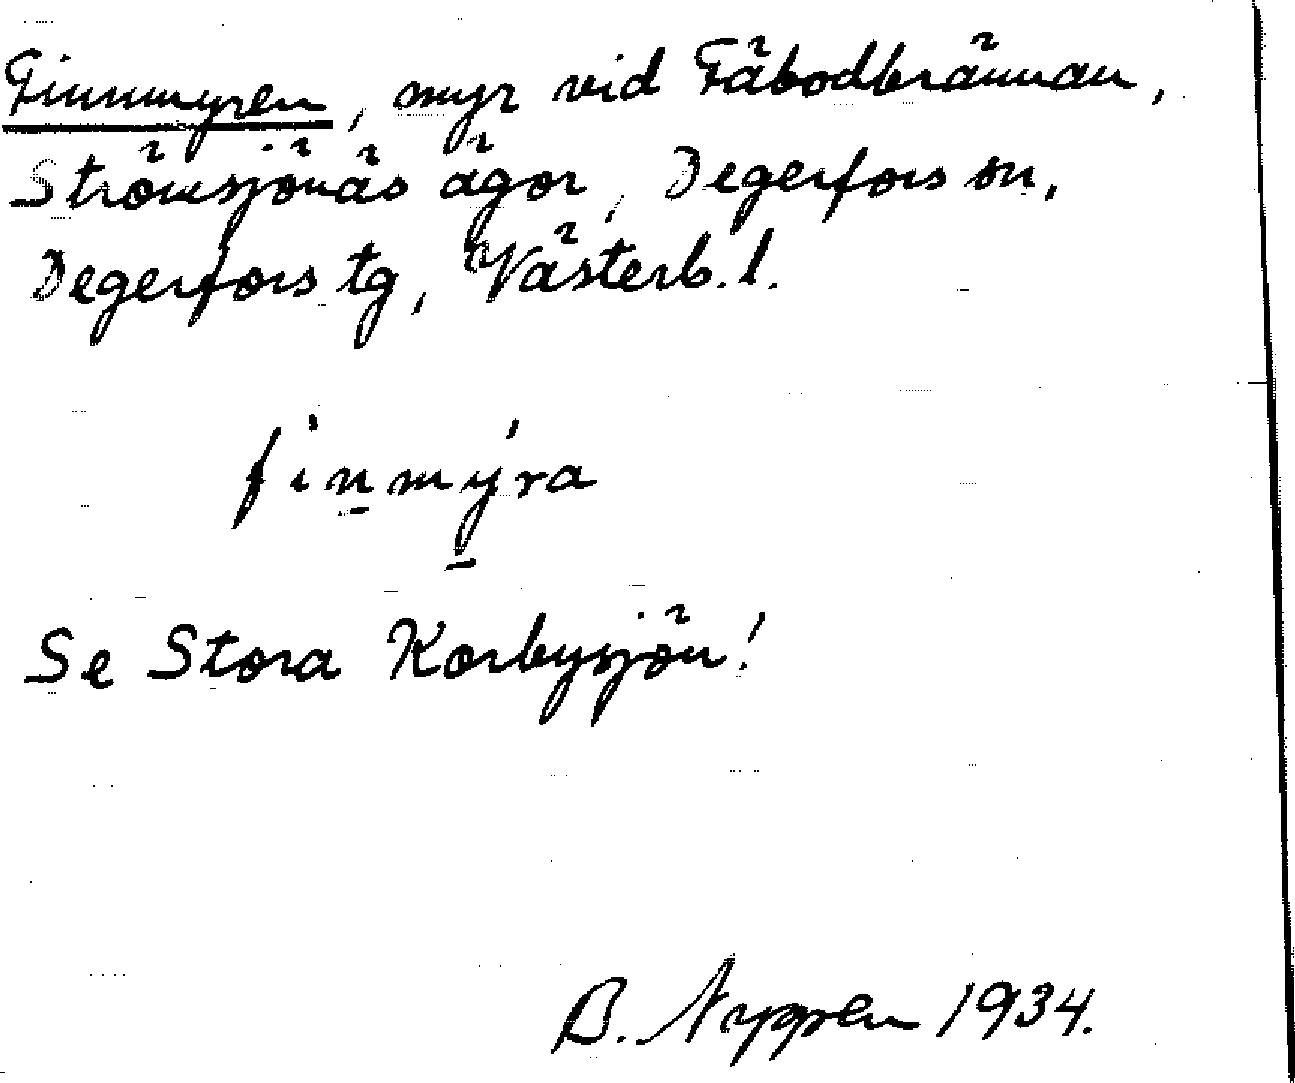 Finnmyren, myr vid Fäbodbrännan,
Strömsjönäs ägor, Degerfors sn,
Degerfors tg, Västerb. l.
finmýra
Se Stora Korbysjön!
B. Nyppen 1934.